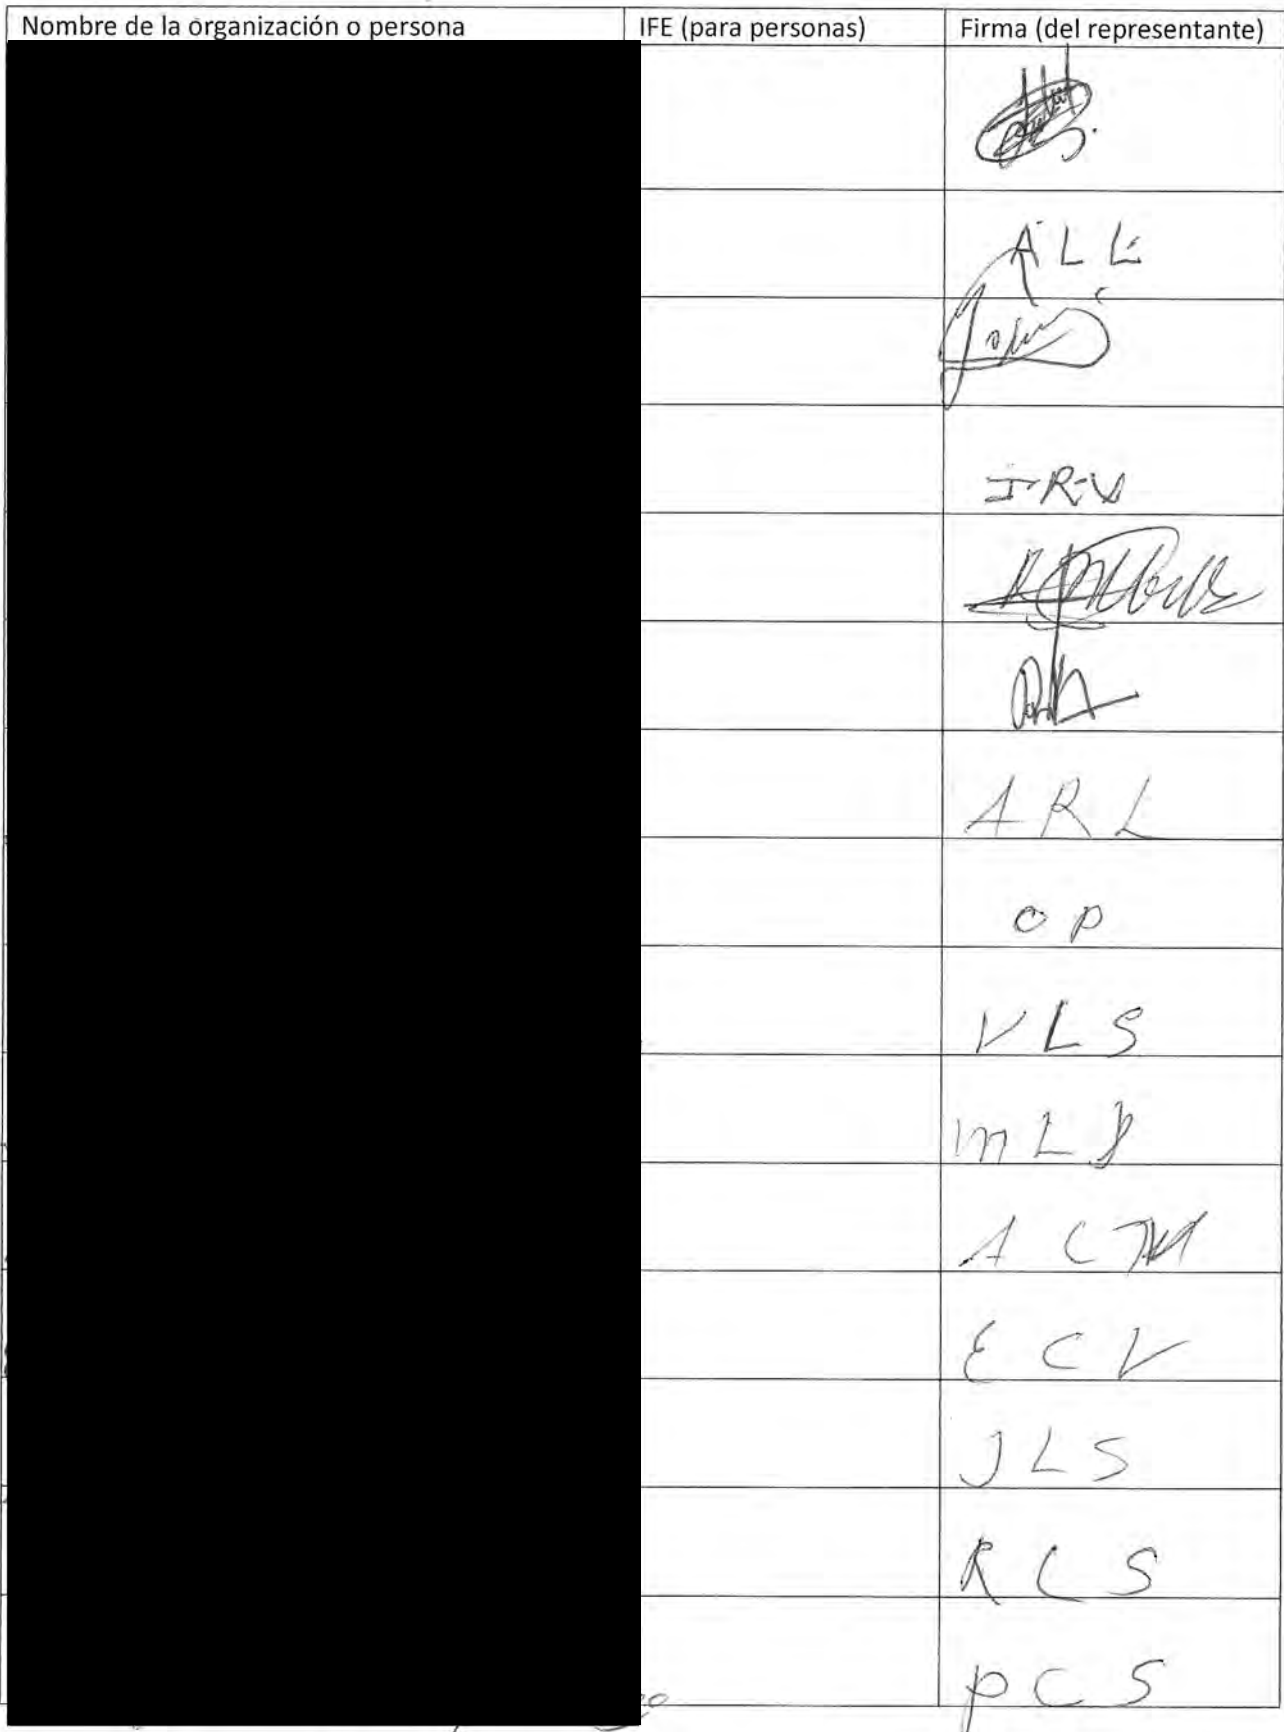 Nombre de la organización o persona IFE (para personas) Firma (del representante)
A L L
I-R-V
A R L
O P
V L S
A C M
E C V
J L S
R C S
P C S